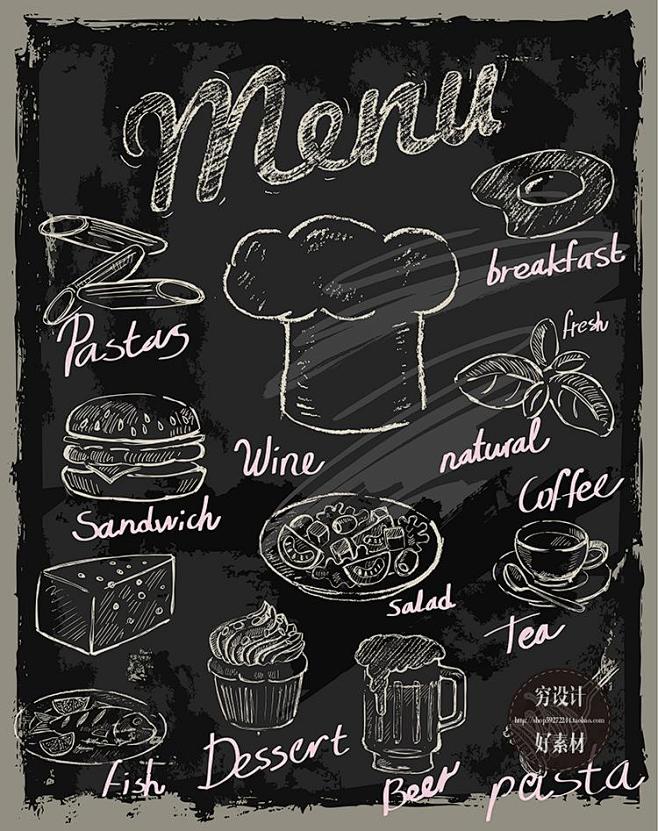 Menu
breakfast
Pastas
fresh
natural
Wine
Coffee
Sandwich
salad
Tea
穷设计
http://shop59272246.taobao.com
好素材
Dessert
Fish
Beer
pasta